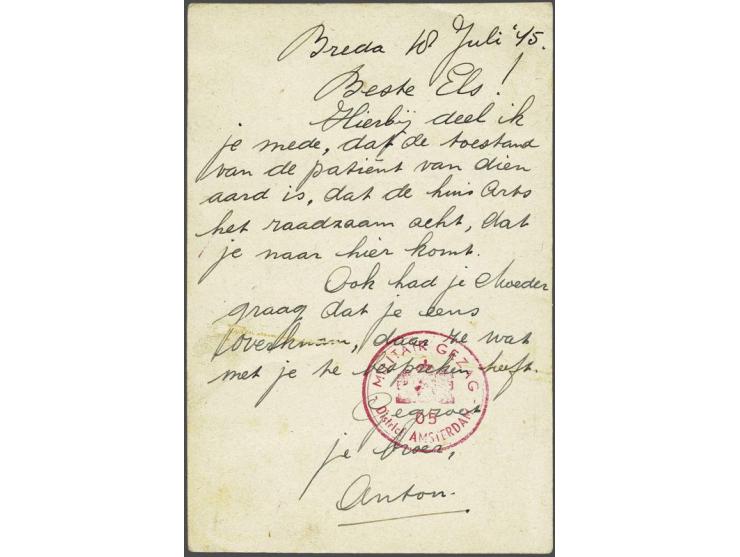 Breda 18 Juli '45.
Beste Els!
Hierbij deel ik
je mede, dat de toestand
van de patiënt van dien
aard is, dat de huis Arts
het raadzaam acht, dat
je naar hier komt.
Ook had je Moeder
graag dat je eens
overkwam, daar ze wat
met je te bespreken heeft.
Gegroet
je broer,
Anton.
MILITAIR GEZAG
05
District AMSTERDAM